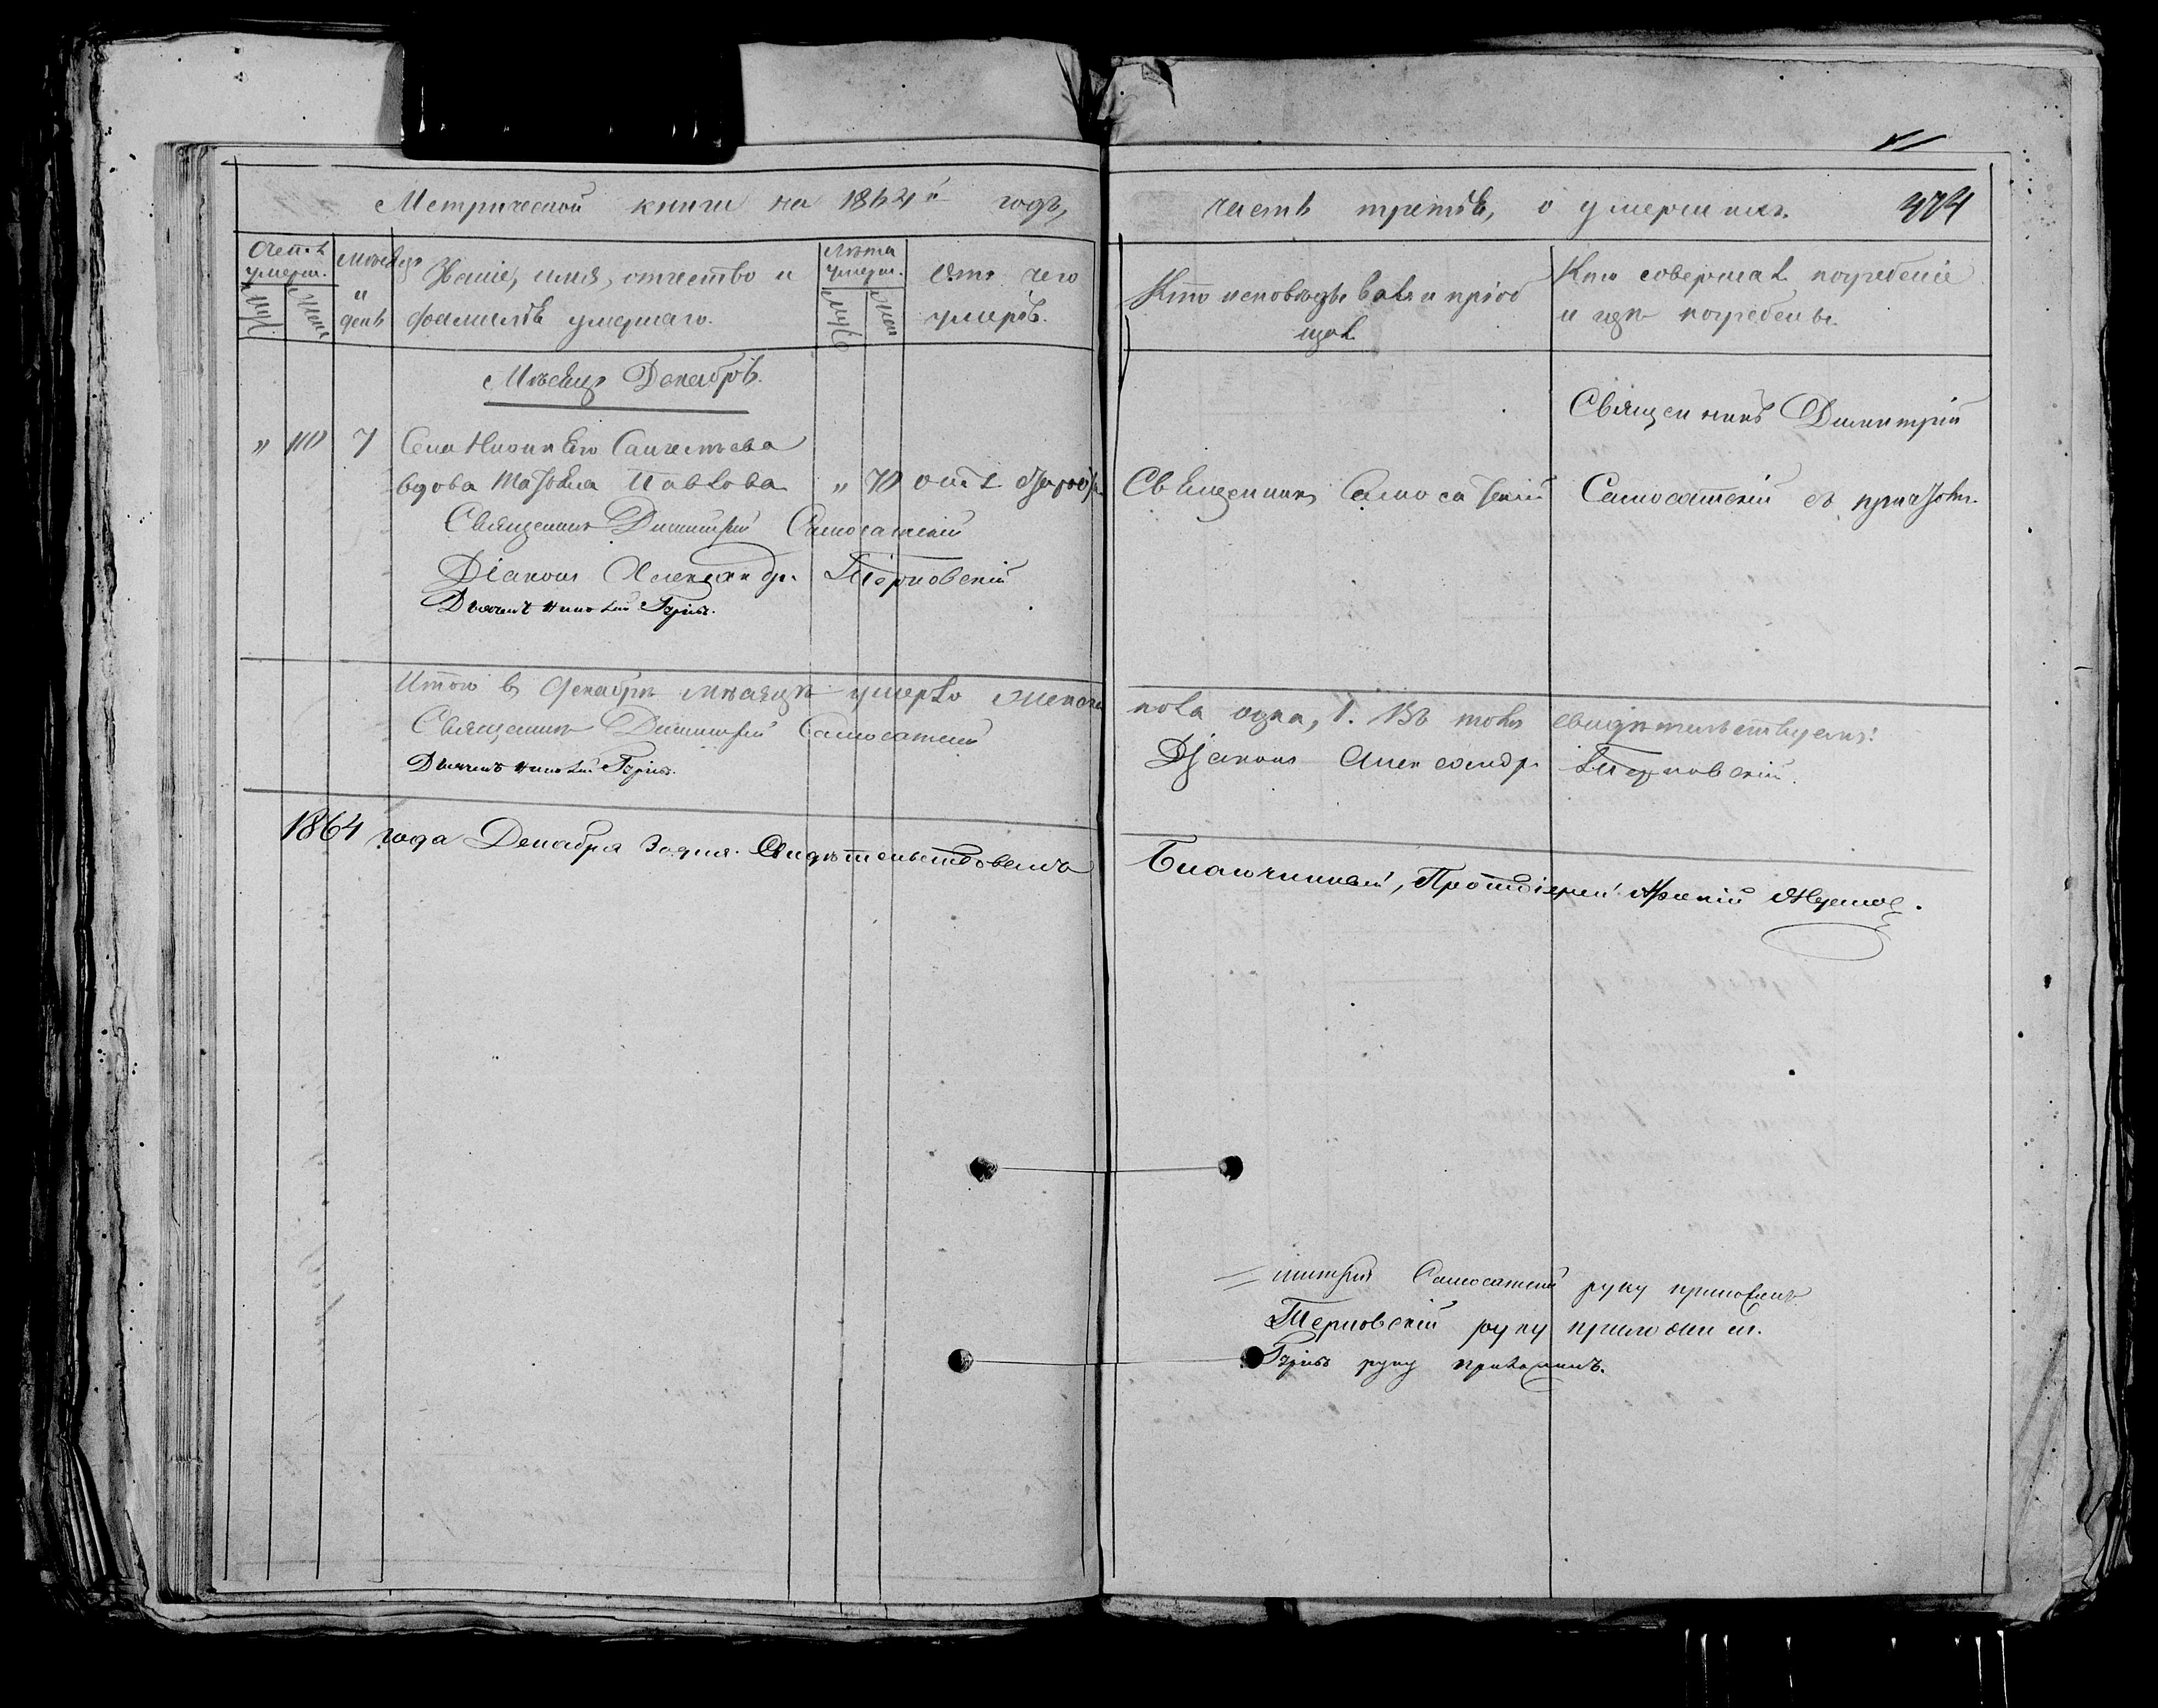 Метрической книги на 1864й годъ,
часть третья, о умершихъ. 374
Счетъ умерш.
Муж. Жен.
Мѣсяцъ и день
Званіе, имя, отчество и
фамилія умершаго.
Лѣта умерш.
Муж. Жен
Отъ чего
умеръ.
Кто исповѣдывалъ и пріоб
щалъ
Кто совершалъ погребеніе
и гдѣ погребены.
Мѣсяцъ Декабрь.
Священникъ Димитрій
" 10 7 Села
вдова Татьяна Павлова " 70 отъ
Священникъ Самосатскій Самосатскій съ причтомъ.
Священникъ Димитрій Самосатскій
Діаконъ Александръ Терновскій
Дьячекъ
Итого въ Декабрѣ мѣсяцѣ умерло женска
пола одна, 1. Въ томъ свидѣтельствуемъ:
Священникъ Димитрій Самосатскій
Діаконъ Александръ Терновскій.
Дьячекъ
1864 года Декабря 30 дня. Свидѣтельствовалъ
Благочинный, Протоіерей
митрій Самосатскій руку приложилъ
Терновскій руку приложилъ.
руку приложилъ.